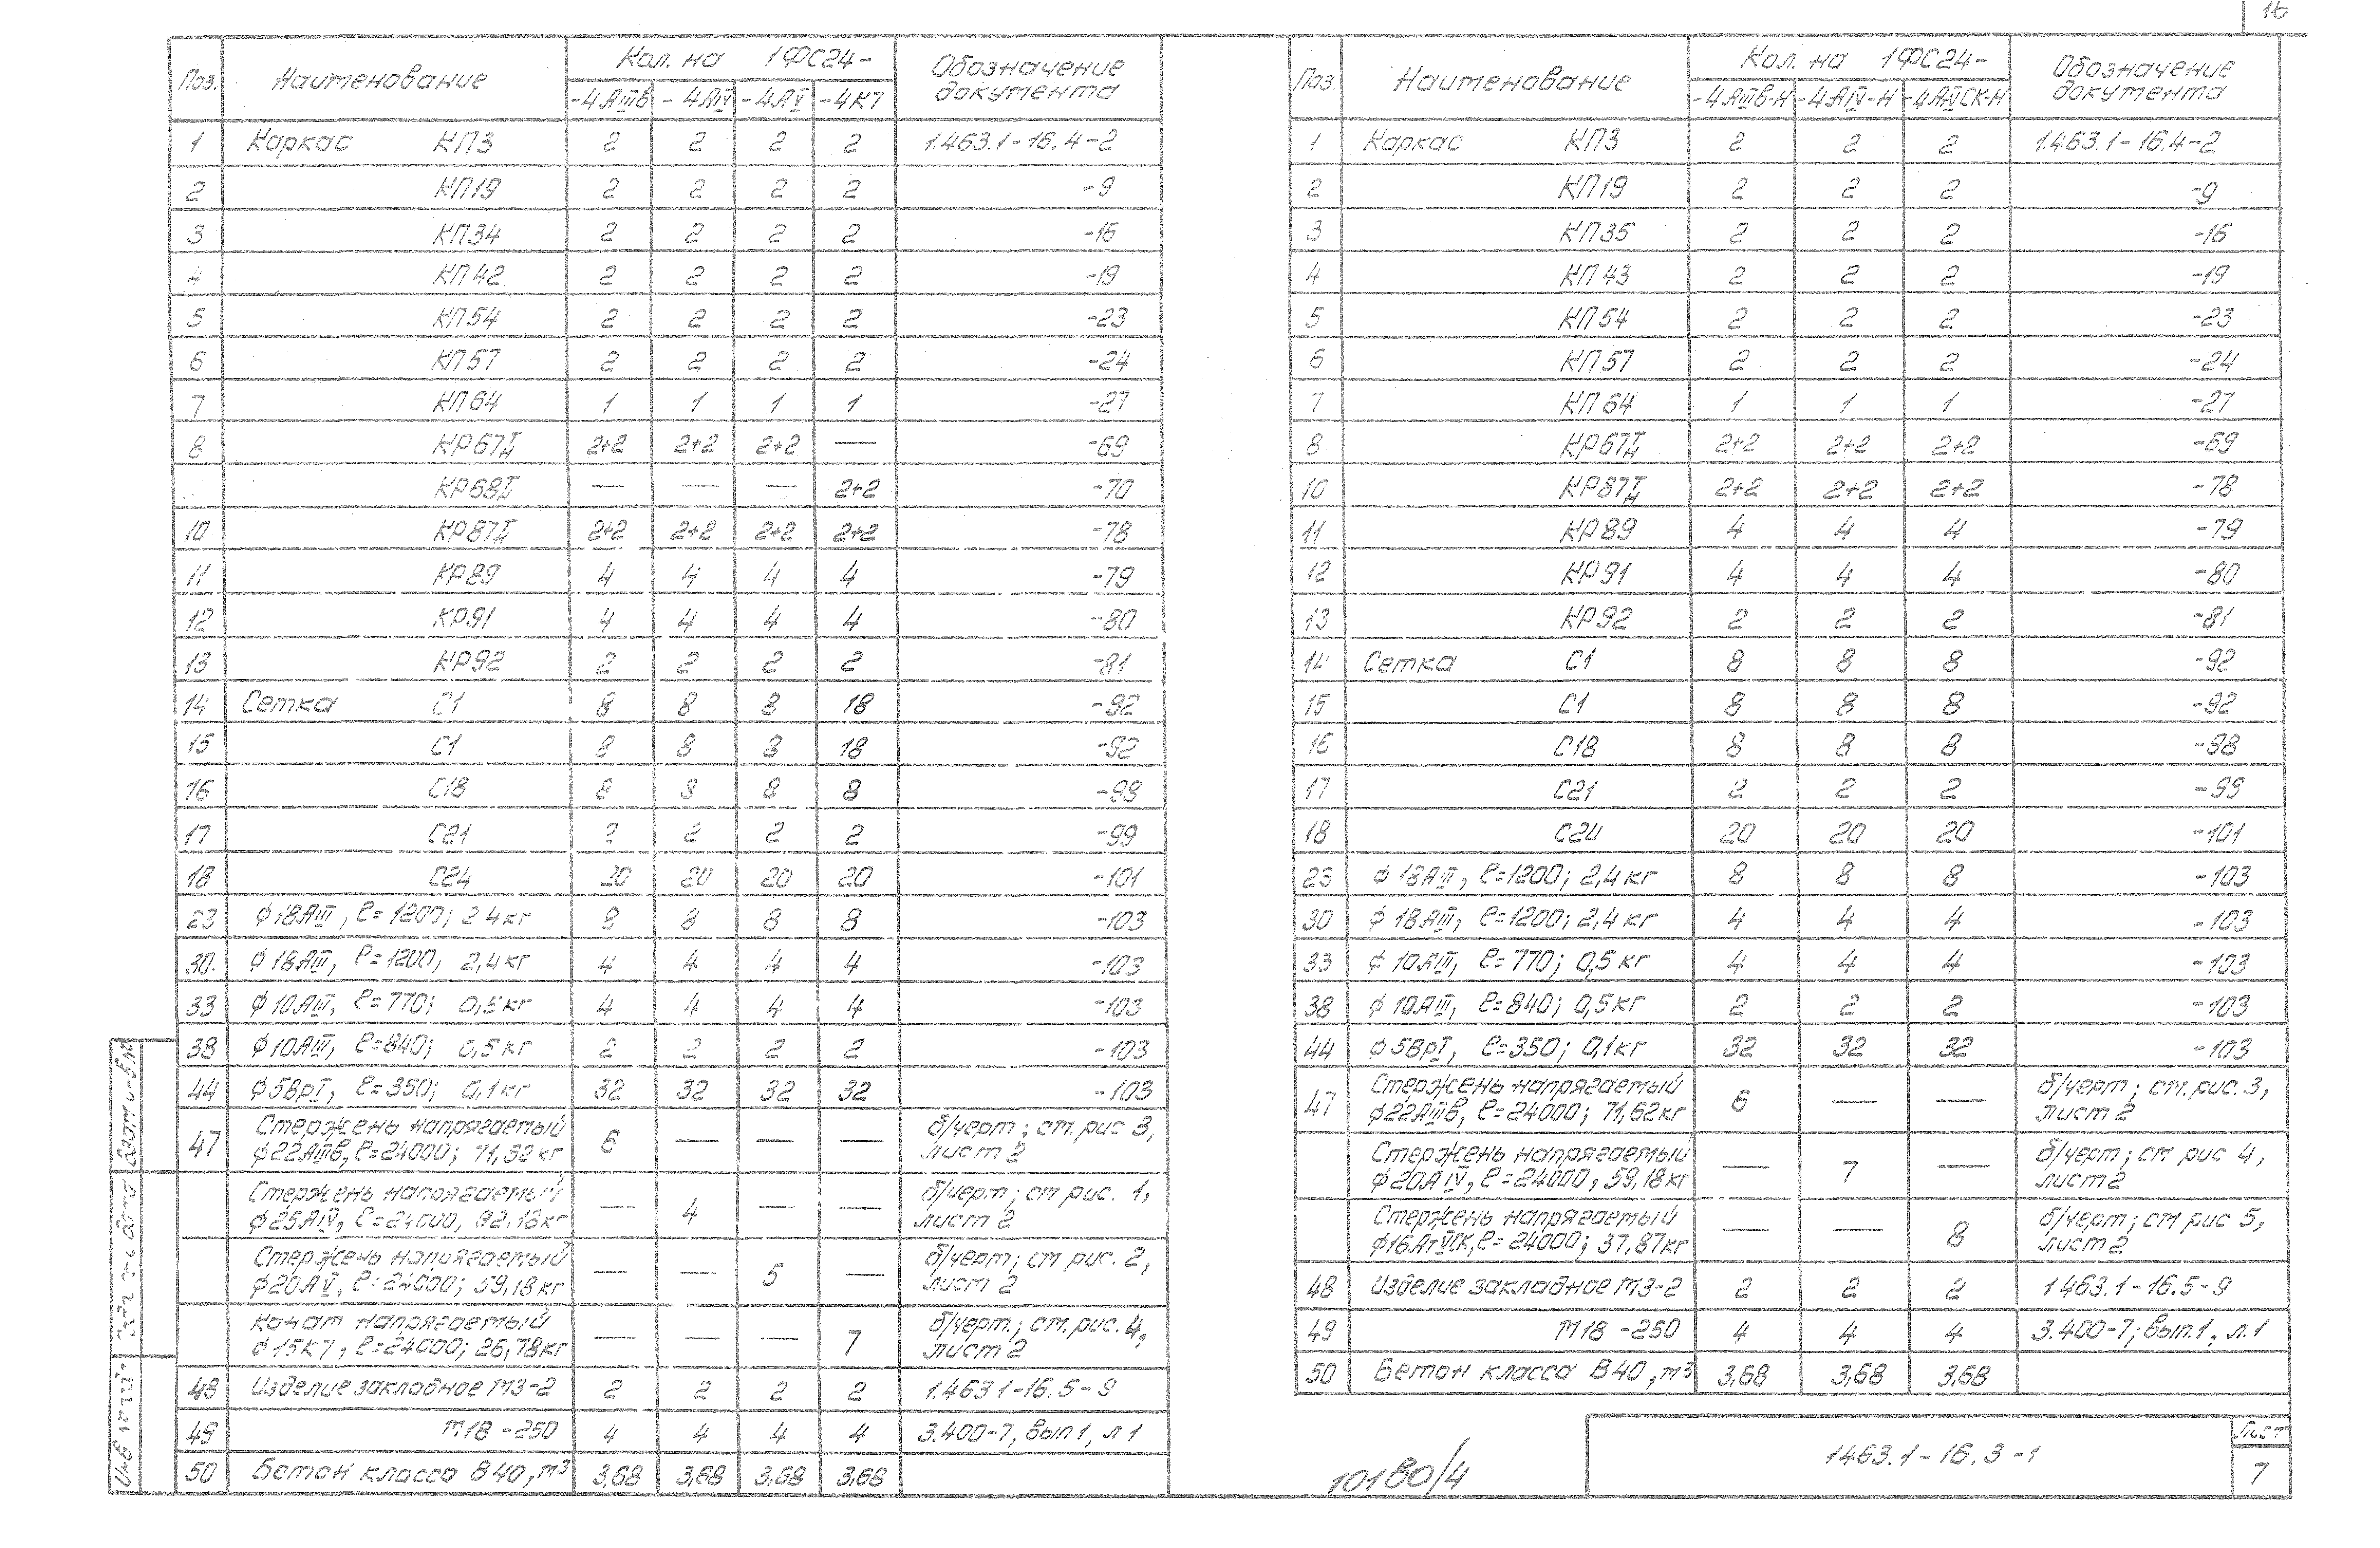 16
Поз. Наименование Кол. на 1ФС24- Обозначение документа
-4АIIIв -4АIV -4АV -4К7
1 Каркас КП3 2 2 2 2 1.463.1-16.4-2
2 КП19 2 2 2 2 -9
3 КП34 2 2 2 2 -16
4 КП42 2 2 2 2 -19
5 КП54 2 2 2 2 -23
6 КП57 2 2 2 2 -24
7 КП64 1 1 1 1 -27
8 КР67Т/Н 2+2 2+2 2+2 — -69
КР68Т/Н — — — 2+2 -70
10 КР87Т/Н 2+2 2+2 2+2 2+2 -78
11 КР89 4 4 4 4 -79
12 КР91 4 4 4 4 -80
13 КР92 2 2 2 2 -81
14 Сетка С1 8 8 8 18 -92
15 С1 8 8 8 18 -92
16 С18 8 8 8 8 -98
17 С21 2 2 2 2 -99
18 С24 20 20 20 20 -101
23 ϕ18АIII, ℓ=1200; 2,4кг 8 8 8 8 -103
30. ϕ18АIII, ℓ=1200, 2,4кг 4 4 4 4 -103
33 ϕ10АIII, ℓ=770; 0,5кг 4 4 4 4 -103
38 ϕ10АIII, ℓ=840; 0,5кг 2 2 2 2 -103
44 ϕ5ВрI, ℓ=350; 0,1кг 32 32 32 32 -103
47 Стержень напрягаемый 6 — — — б/черт; см. рис 3,
ϕ22АIIIв, ℓ=24000; 71,62кг лист 2
Стержень напрягаемый — 4 — — б/черт; см рис. 1,
ϕ25АIV, ℓ=24000, 92.18кг лист 2
Стержень напрягаемый — — 5 — б/черт; см рис. 2,
ϕ20АV, ℓ=24000; 59,18кг лист 2
Канат напрягаемый — — — 7 б/черт.; см. рис. 4,
ϕ15К7, ℓ=24000; 26,78кг лист 2
48 Изделие закладное М3-2 2 2 2 2 1.463.1-16.5-9
49 М18-250 4 4 4 4 3.400-7, вып 1, л 1
50 Бетон класса В40, м³ 3,68 3,68 3,68 3,68
Поз. Наименование Кол. на 1ФС24- Обозначение документа
-4АIIIв-Н -4АIV-Н -4АтVСК-Н
1 Каркас КП3 2 2 2 1.463.1-16.4-2
2 КП19 2 2 2 -9
3 КП35 2 2 2 -16
4 КП43 2 2 2 -19
5 КП54 2 2 2 -23
6 КП57 2 2 2 -24
7 КП64 1 1 1 -27
8 КР67Т/Н 2+2 2+2 2+2 -69
10 КР87Т/Н 2+2 2+2 2+2 -78
11 КР89 4 4 4 -79
12 КР91 4 4 4 -80
13 КР92 2 2 2 -81
14 Сетка С1 8 8 8 -92
15 С1 8 8 8 -92
16 С18 8 8 8 -98
17 С21 2 2 2 -99
18 С24 20 20 20 -101
23 ϕ18АIII, ℓ=1200; 2,4кг 8 8 8 -103
30 ϕ18АIII, ℓ=1200; 2,4кг 4 4 4 -103
33 ϕ10АIII, ℓ=770; 0,5кг 4 4 4 -103
38 ϕ10АIII, ℓ=840; 0,5кг 2 2 2 -103
44 ϕ5ВрI, ℓ=350; 0,1кг 32 32 32 -103
47 Стержень напрягаемый 6 — — б/черт; см. рис. 3,
ϕ22АIIIв, ℓ=24000; 71,62кг лист 2
Стержень напрягаемый — 7 — б/черт; см рис 4,
ϕ20АIV, ℓ=24000, 59,18кг лист 2
Стержень напрягаемый — — 8 б/черт; см рис 5,
ϕ16АтVСК, ℓ=24000; 37,87кг лист 2
48 Изделие закладное М3-2 2 2 2 1463.1-16.5-9
49 М18-250 4 4 4 3.400-7; вып.1, л.1
50 Бетон класса В40, м³ 3,68 3,68 3,68
10180/4
1463.1-16.3-1
Лист
7